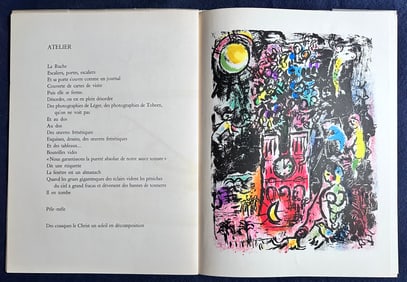 ATELIER
La Ruche
Escaliers, portes, escaliers
Et sa porte s'ouvre comme un journal
Couverte de cartes de visite
Puis elle se ferme.
Désordre, on est en plein désordre
Des photographies de Léger, des photographies de Tobeen,
qu'on ne voit pas
Et au dos
Au dos
Des œuvres frénétiques
Esquisses, dessins, des œuvres frénétiques
Et des tableaux...
Bouteilles vides
« Nous garantissons la pureté absolue de notre sauce tomate »
Dit une étiquette
La fenêtre est un almanach
Quand les grues gigantesques des éclairs vident les péniches
du ciel à grand fracas et déversent des bannes de tonnerre
Il en tombe
Pêle-mêle
Des cosaques le Christ un soleil en décomposition